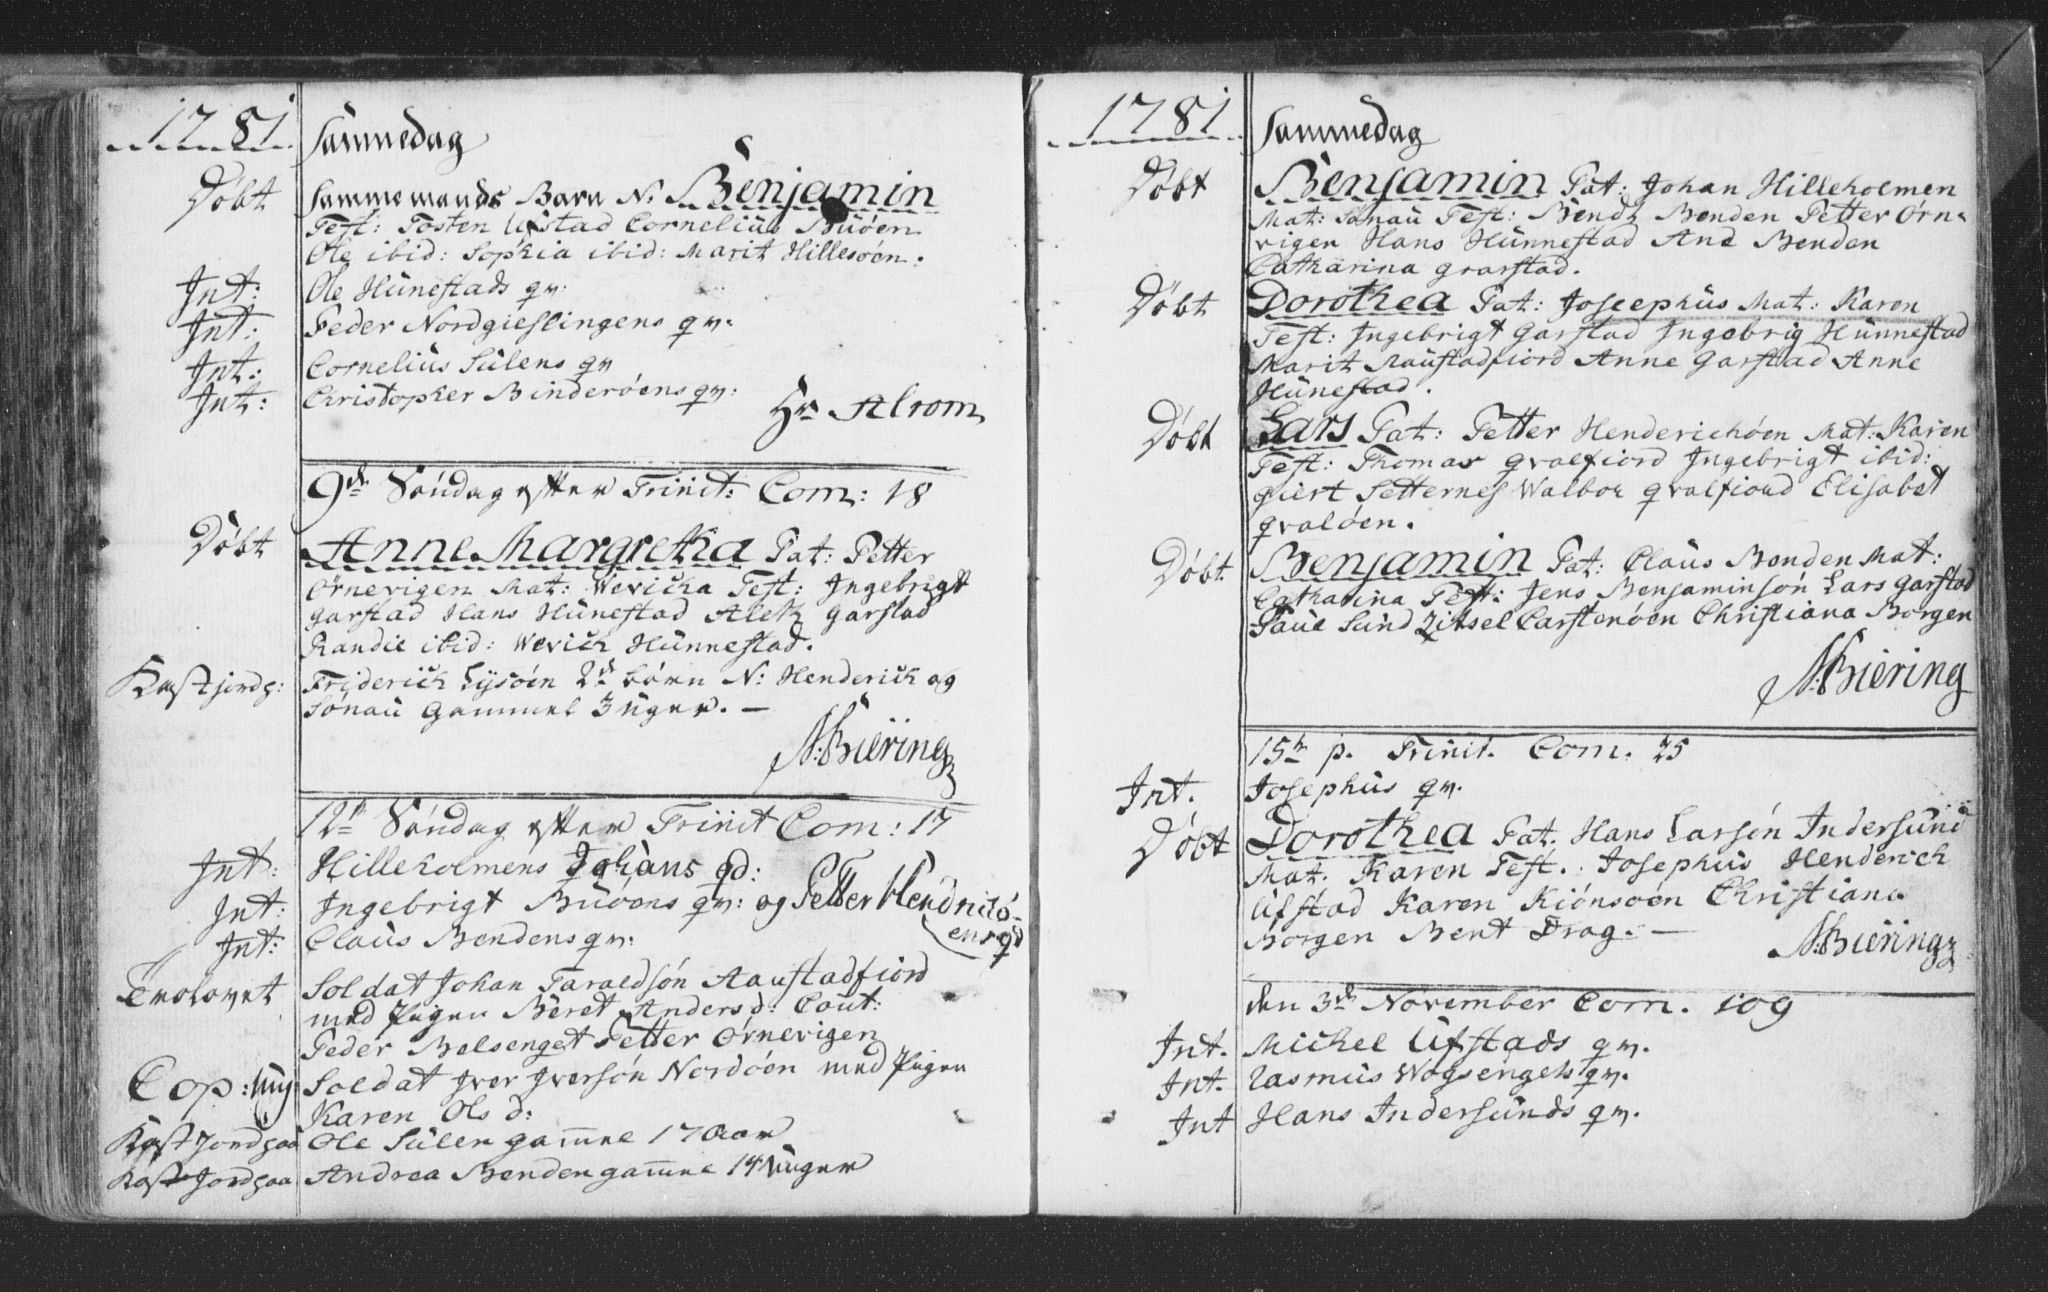 1781
Sammedag
Döbt Sammemands Barn N: Benjamin
Test: Tosten Ufstad Cornelius Buöen
Ole ibid: Sophia ibid: Marit Hillesöen.
Int: Ole Hünestads qv:
Int: Peder Nordgieslingens qv:
Int: Cornelius Sülens qv
Int: Christopher Binderöens qv:
Hr Alrom
9de Söndag efter Trinit: Com: 18
Döbt Anne Margretha Pat: Petter
Ornevigen Mat: Wevicka Test: Ingebrigt
Garstad Hans Hünestad Aletz Garstad
Randie ibid: Wevich Hünnestad.
Kast jordp: Friderich Lysöen 2de börn N: Henderich og
Sönau Gammel 3 uger. —
N: Biering
12te Söndag efter Trinit Com: 17
Int: Hilleholmens Johans qv:
Int: Ingebrigt Buöens qv: og Petter Hendrichö-
ens qv
Int: Claus Bendens qv:
Trolovet Soldat Johan Taraldsön Raustadfiord
med Pigen Beret Anders d: Caut:
Peder Belsenget Petter Ornevigen
Cop: Soldat Iver Iversön Nordöen med Pigen
Karen Ols d:
Kast Jord paa Ole Sülen gamel 17 Aar
Kast Jord paa Andrea Benden gamel 14 uger
1781
Sammedag
Döbt Benjamin Pat: Johan Hilleholmen
Mat: Sönau Test: Bendt Benden Petter Örn-
vigen Hans Hünnestad Ane Benden
Catharina Grarstad.
Döbt Dorothea Pat: Joseephus Mat: Karen
Test: Ingebrigt Garstad Ingebrig Hünnestad
Marit Raustadfiord Anne Garstad Anne
Hünestad.
Döbt Lars Pat: Petter Henderichöen Mat: Karen
Test: Thomas qvalfiord Ingebrigt ibid:
giert Setternes Walbor qvalfiord Elisabet
qvalöen.
Döbt Benjamin Pat: Claus Benden Mat:
Catharina Test: Jens Benjaminsön Lars Garstad
Paul Sund Zitsel Carstenöen Christiana Borgen
N: Biering
15de p. Trinit. Com. 25
Int. Josephus qv.
Döbt Dorothea Pat. Hans Larsön Indersund
Mat. Karen Test. Josephus Henderich
Ufstad Karen Kiönsöen Christiane
Borgen Bent Drag. —
N: Biering
den 3de November Com. 109
Int. Mickel Ufstads qv.
Int. Rasmus Wogsengels qv.
Int Hans Indersunds qv.